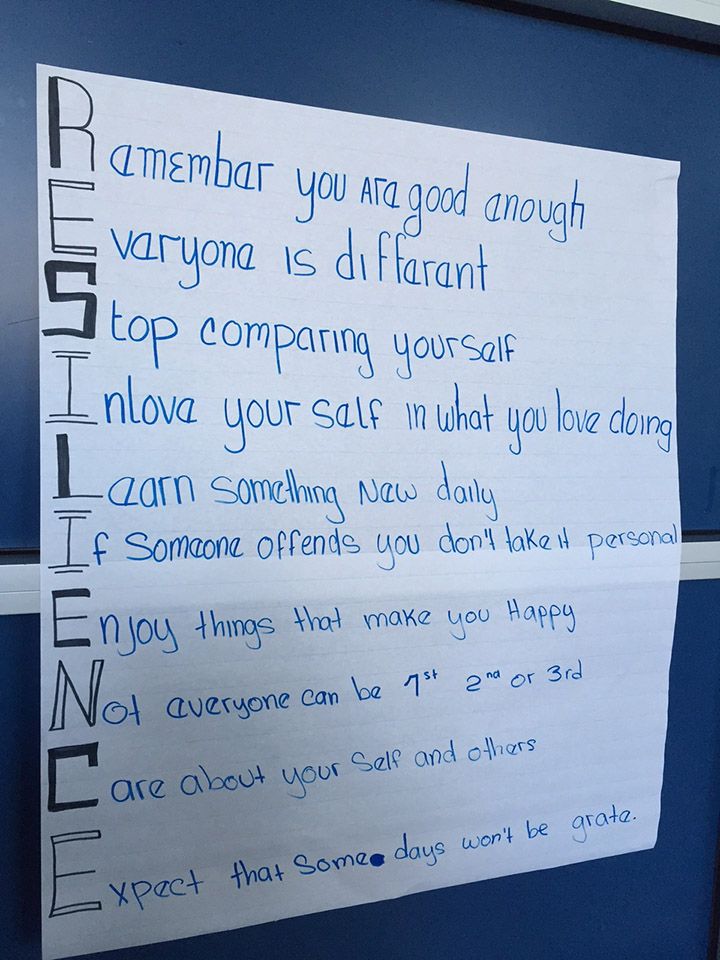 Remember you Are good enough
Everyone is different
Stop comparing yourself
Inlove your self in what you love doing
Learn something New daily
If Someone offends you don't take it personal
Enjoy things that make you Happy
Not everyone can be 1st 2nd or 3rd
Care about your Self and others
Expect that Some days won't be grate.